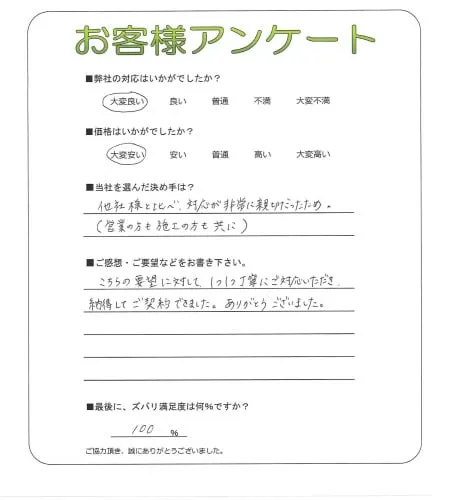 お客様アンケート
■弊社の対応はいかがでしたか？
大変良い 良い 普通 不満 大変不満
■価格はいかがでしたか？
大変安い 安い 普通 高い 大変高い
■当社を選んだ決め手は？
他社様と比べ、対応が非常に親切だったため。
(営業の方も施工の方も共に)
■ご感想・ご要望などをお書き下さい。
こちらの要望に対して、1つ1つ丁寧にご対応いただき、
納得してご契約できました。ありがとうございました。
■最後に、ズバリ満足度は何%ですか？
100 %
ご協力頂き、誠にありがとうございました。